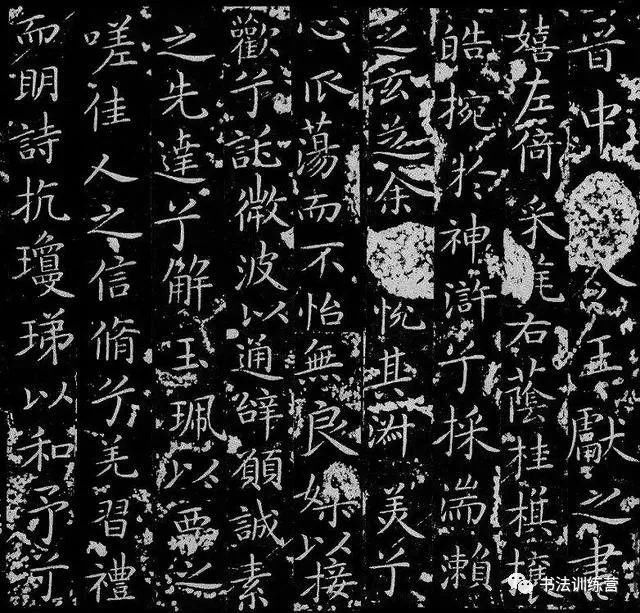 晉中令王獻之書
嬉左倚采旄右蔭桂旗攘
皓捥於神滸兮採湍瀨
之玄芝余悅其淑美兮
心振蕩而不怡無良媒以接
歡兮託微波以通辭願誠素
之先達兮解玉珮以要之
嗟佳人之信脩兮羌習禮
而明詩抗瓊珶以和予兮
书法训练营